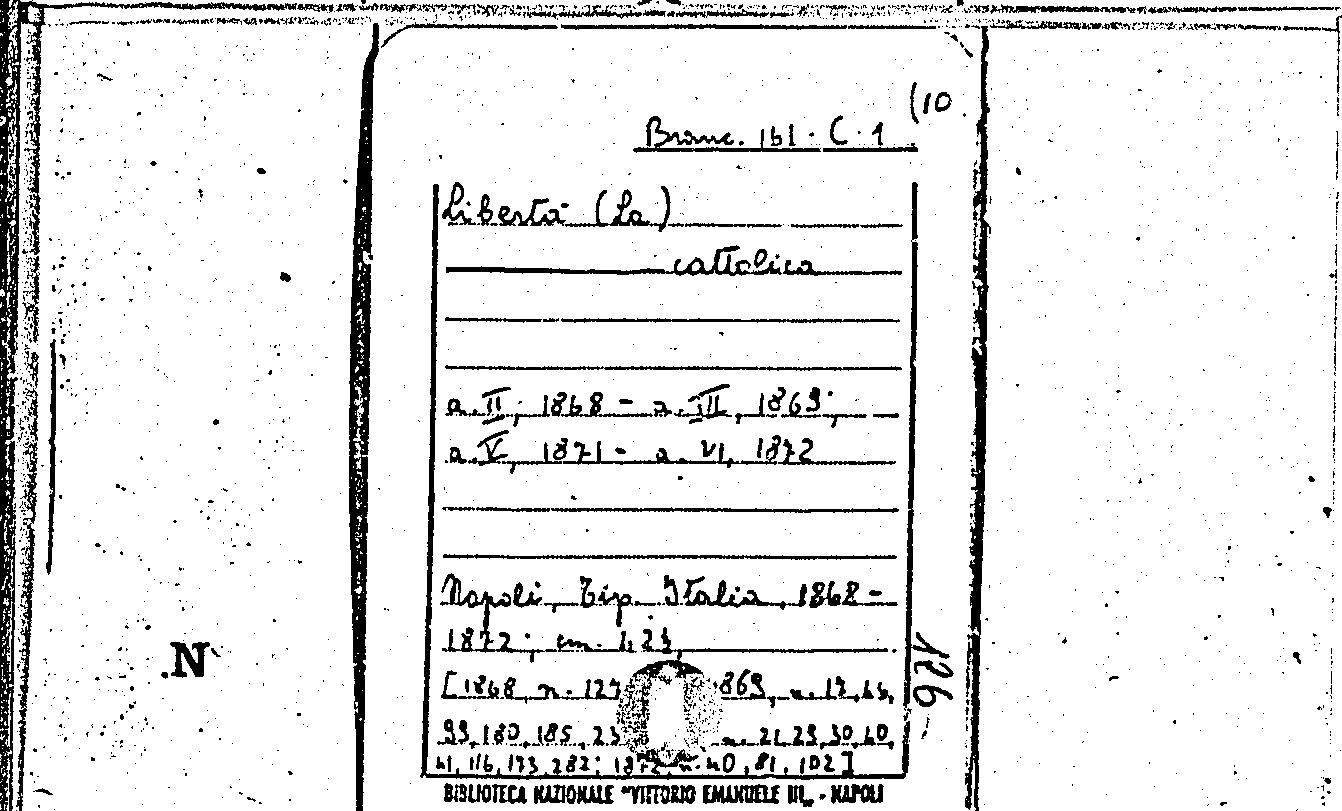 (10
Branc. 161. C. 1
Libertà (La)
cattolica
a. II, 1868 - a. III, 1869;
a. V, 1871 - a. VI, 1872
Napoli, Tip. Italia, 1868-
1872; cm.
[1868, n. 127 869, n. 17,
99, 180, 185, 23 n. 21, 29, 30, 40,
41, 116, 173, 282; 1872, n. 40, 81, 102]
BIBLIOTECA NAZIONALE "VITTORIO EMANUELE III„ - NAPOLI
126
.N